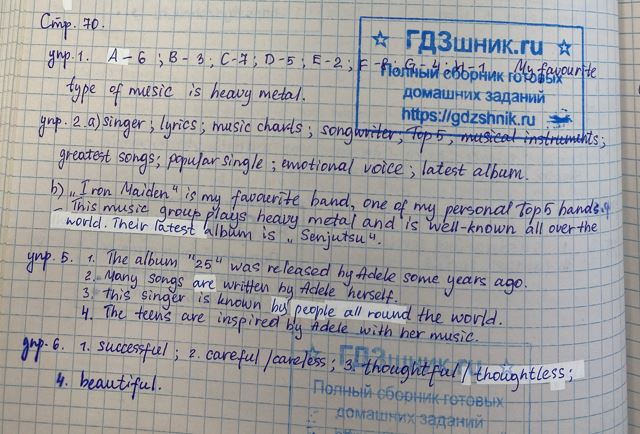 Стр. 70.
упр. 1. A-6 ; B-3 ; C-7 ; D-5 ; E-2 ; My favourite
type of music is heavy metal.
упр. 2. a) singer ; lyrics ; music charts ; songwriter, Top 5 , musical instruments ;
greatest songs ; popular single ; emotional voice ; latest album.
b) „Iron Maiden" is my favourite band, one of my personal Top 5 bands.
This music group plays heavy metal and is well-known all over the
world. Their latest album is „Senjutsu".
упр. 5. 1. The album "25" was released by Adele some years ago.
2. Many songs are written by Adele herself.
3. This singer is known by people all round the world.
4. The teens are inspired by Adele with her music.
упр. 6. 1. successful ; 2. careful / careless ; 3. thoughtful / thoughtless ;
4. beautiful.
ГДЗшник.ru
Полный сборник готовых
домашних заданий
https://gdzshnik.ru
ГДЗшник.ru
Полный сборник готовых
домашних заданий